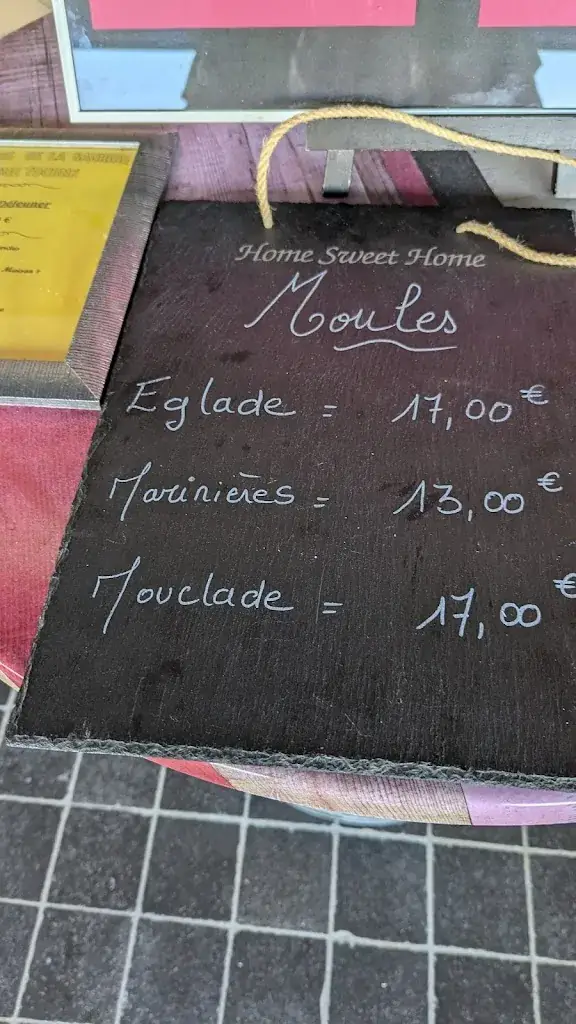 DE LA
Home Sweet Home
Moules
Eglade = 17,00 €
Marinières = 13,00 €
Mouclade = 17,00 €